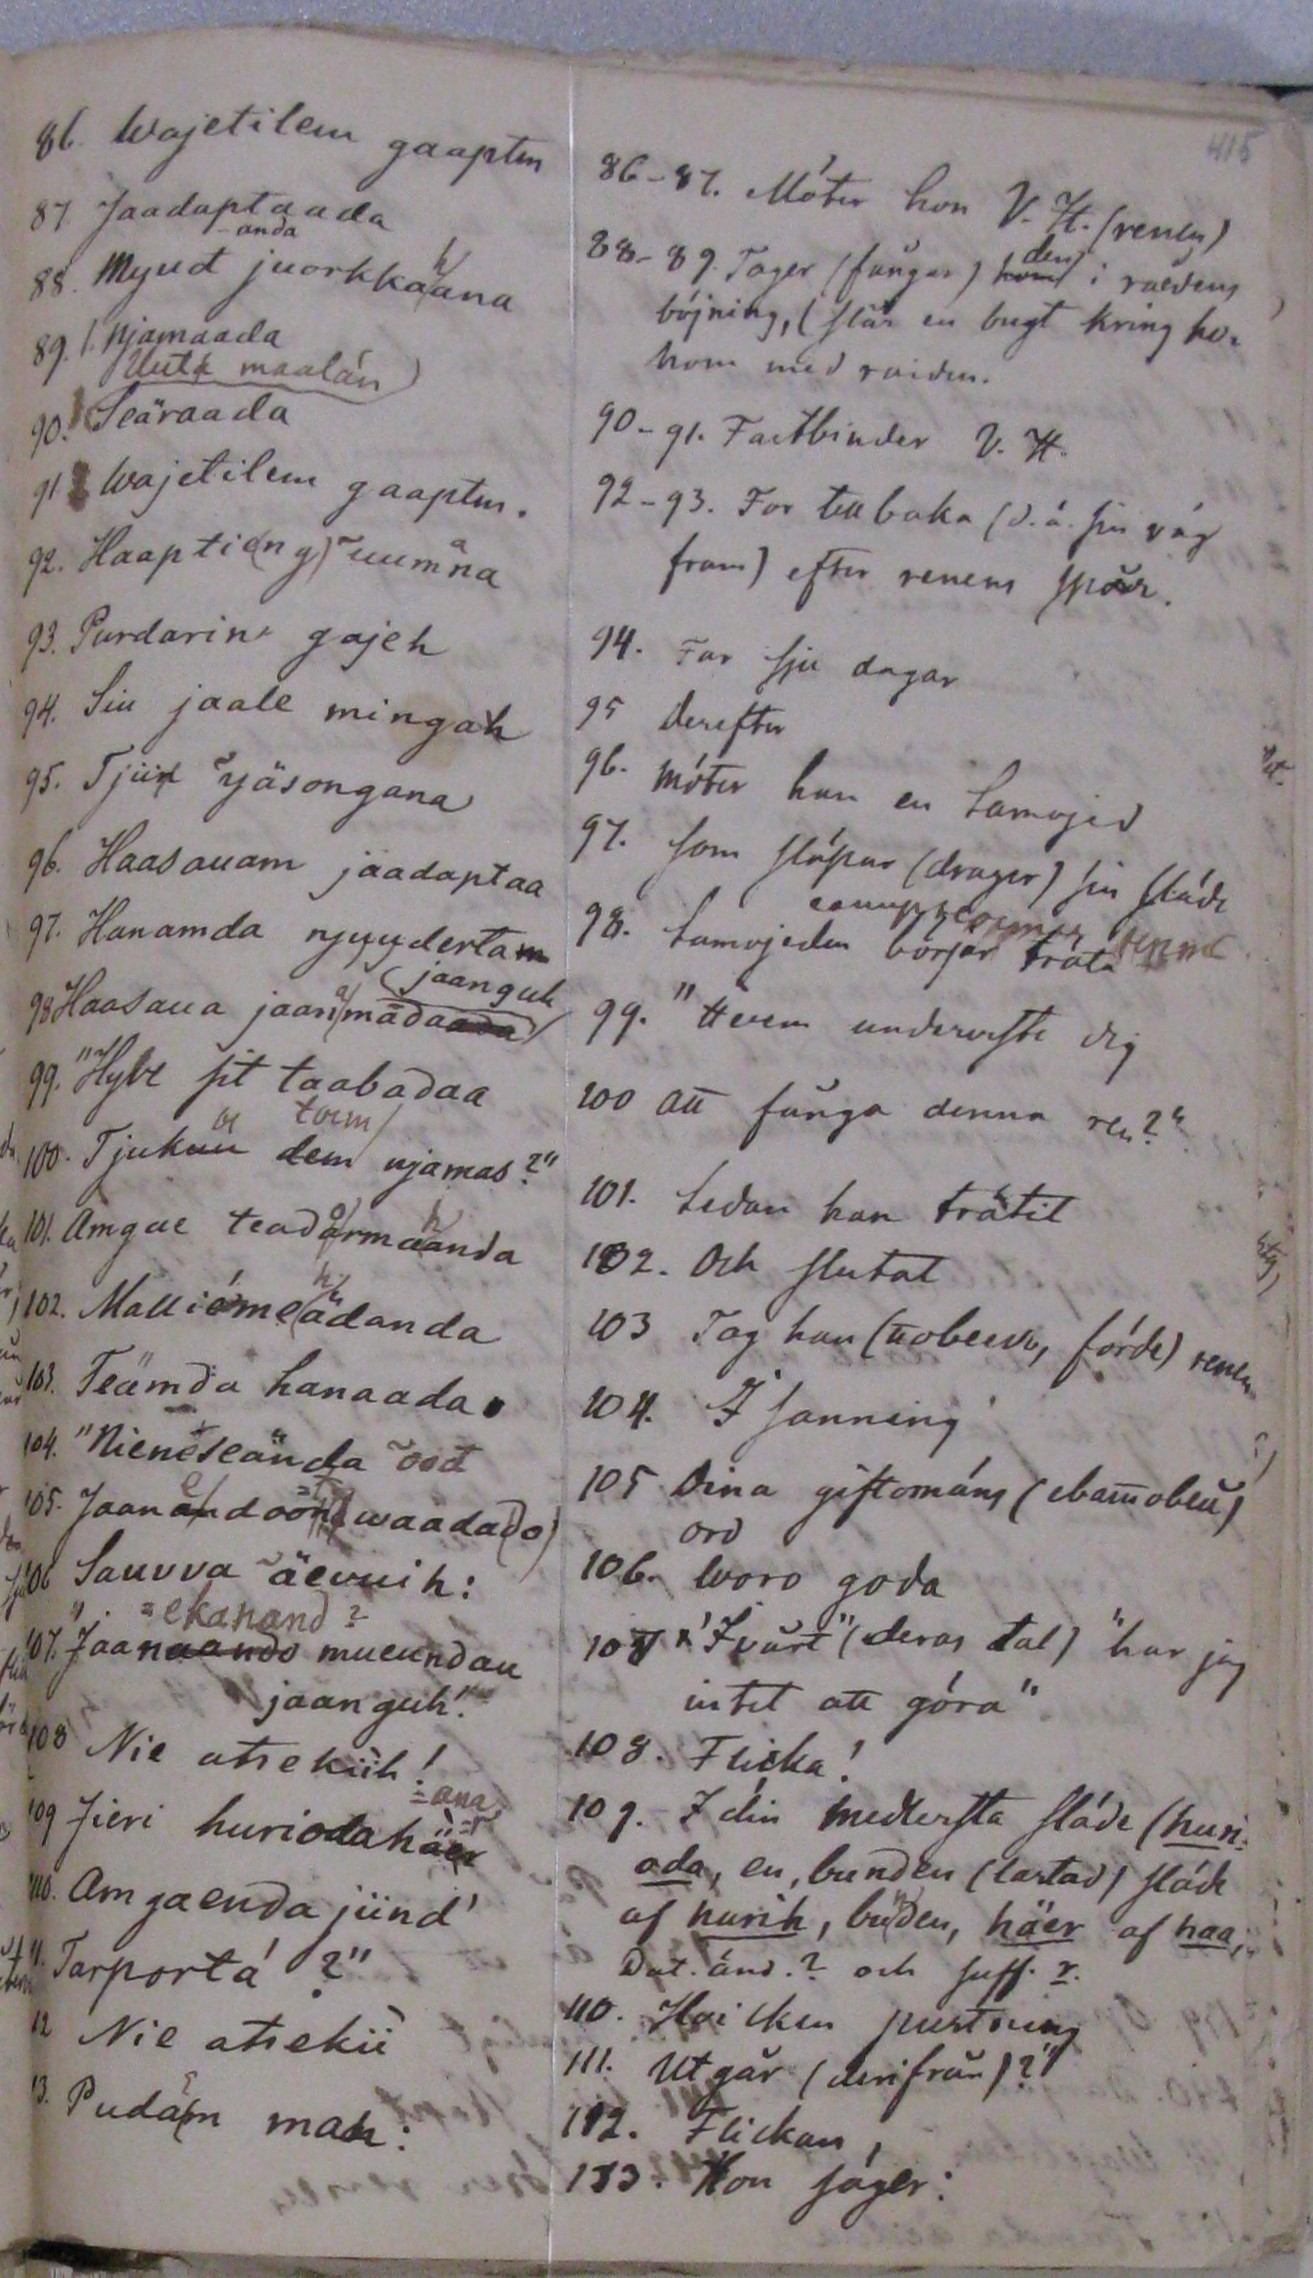 415
86. Wajetilem gaaptm
87. Jaadaptaada
-anda
88. Myud juorkkaana
h/
89. Njamaada
(Uuta maalán)
90. Seäraada
91 Wajetilem gaaptm.
92. Haapti(ng) ~uumna
93. Purdarin gajeh
94. Siu jaale mingah
95. Tjiid ~yäsongana
96. Haasauam jäadaptaa
97. Hanamda nyyydertam
(jaanguh
98 Haasaua jaan/mädaada/
99. "Hybe sit taabadaa
toem/
100. Tjukuu dem njamas?"
101. Amgae teadärmaanda
h/
102. Malliómeädanda
h/
103. Teämda hanaada
104. "Nieneseända ~ood
105. Jaanandoon waada(do)
106 Sauvva ~äevuih:
=ekanand?
107. "Jaanaando mueundau
jaanguh".
108 Nie atsekiih!
=ana
109 Jieri huriodahäer
110. Amgaenda jiind'
11. Tarportá?"
12 Nie atsekii
13. Pudam mah:
86-87. Móter hon V. H. (renen)
den
88-89. Tager (fångar) hom i raedens
böjning, (slår en bugt kring ho-
nom med raiden.
90-91. Fastbinder V. H.
92-93. For tillbaka (d. ä. sin väg
fram) efter renens spår.
94. Far sju dagar
95 Derefter
96. Móter han en Samojed
97. som släpar (drager) sin släde
98. Samojeden börjar träta
99. "Hvem underviste dig
100 att fånga denna ren?"
101. Sedan han trätit
102. Och slutat
103 Tog han (, förde) renen
104. "I sanning
105 Dina giftomäns ()
ord
106. Woro goda
107 "Ivart" (deras tal) "har jag
intet att göra"
108. Flicka!
109. I din medlersta släde (huri-
oda, en, bunden (lastad) släde
af hurih, bunden, häer af haa,
Dat. änd.? och suff. r.
110. Hvilken pustning
111. Utgår (derifrån)?"
112. Flickan,
113. Hon säger: